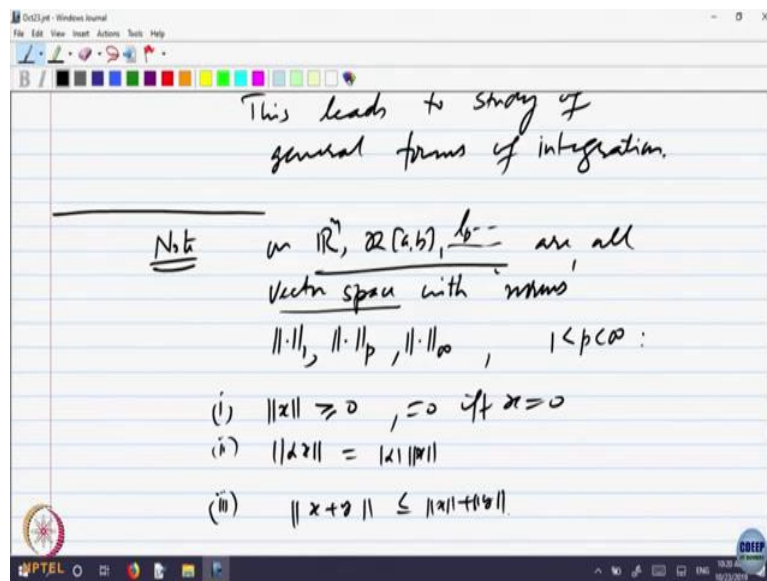 Oct23.jnt - Windows Journal
File Edit View Insert Actions Tools Help
This leads to study of
general forms of integration.
Note on ℝⁿ, R[a,b], lp -- are all
vector space with 'norms'
||·||₁, ||·||p, ||·||∞, 1<p<∞ :
(i) ||x|| ≥ 0, =0 iff x=0
(ii) ||αx|| = |α| ||x||
(iii) ||x+y|| ≤ ||x||+||y||.
NPTEL
CDEEP
ENG
10/23/2019